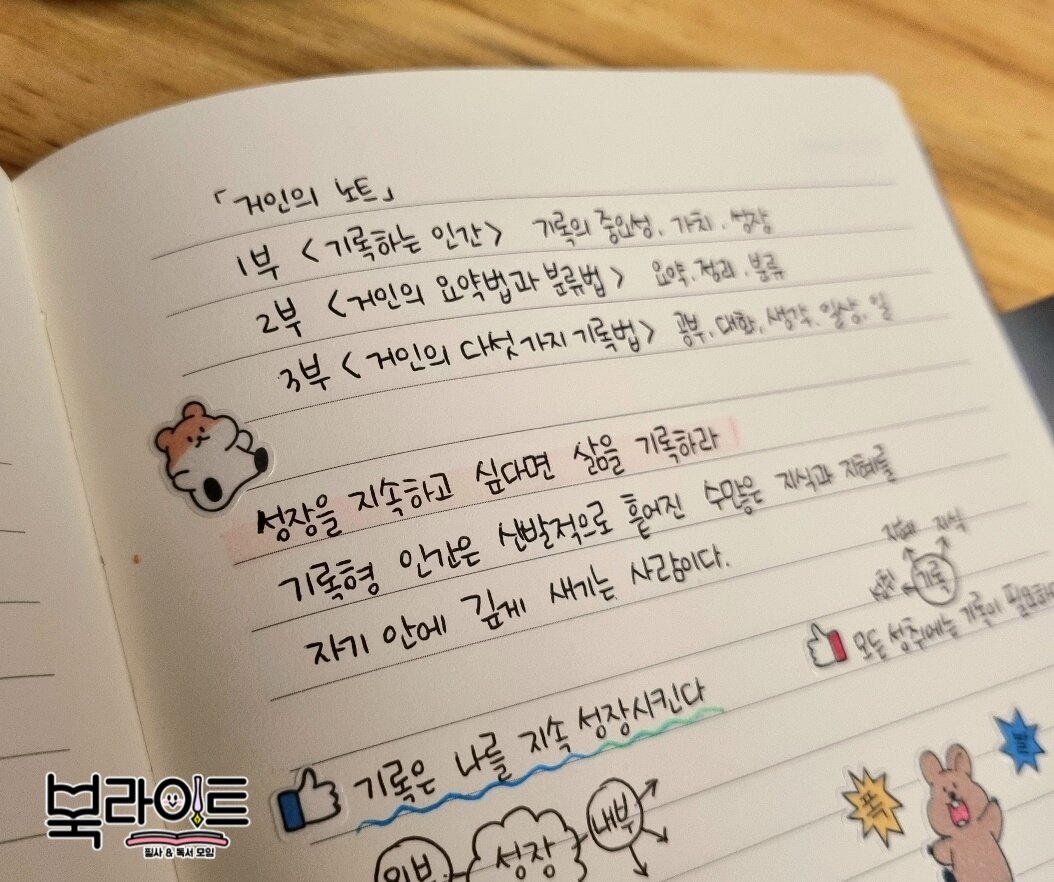 「거인의 노트」
1부 <기록하는 인간> 기록의 중요성, 가치, 성장
2부 <거인의 요약법과 분류법> 요약, 정리, 분류
3부 <거인의 다섯가지 기록법> 공부, 대화, 생각, 일상, 일
성장을 지속하고 싶다면 삶을 기록하라
기록형 인간은 산발적으로 흩어진 수많은 지식과 지혜를
자기 안에 깊게 새기는 사람이다.
지혜 지식
기록
모든 성취에는 기록이
기록은 나를 지속 성장시킨다
내부
성장
외부
폭
북라이트
필사 & 독서 모임